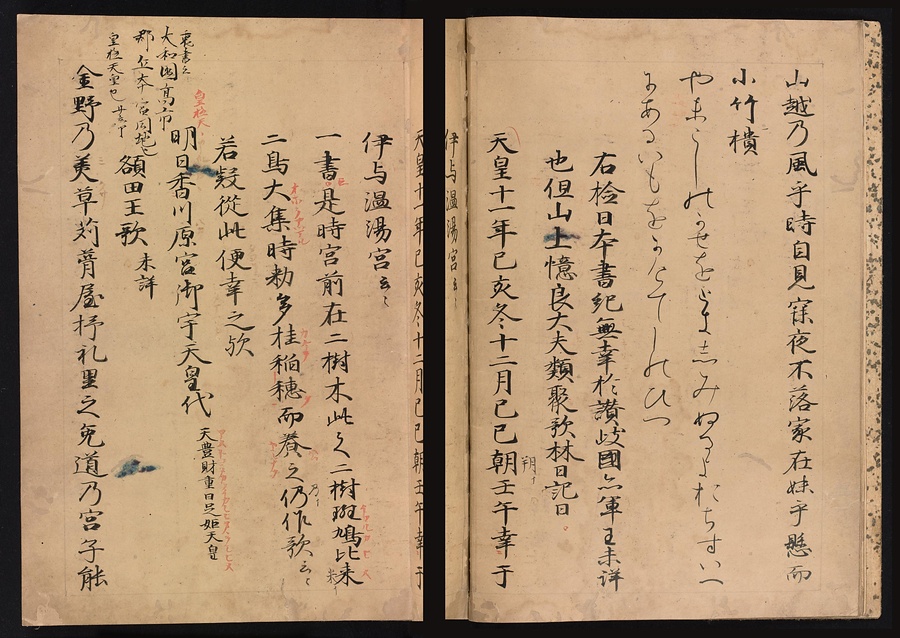 山越乃風乎時自見寐夜不落家在妹乎懸而
小竹樻
やまこしのかせをときしみぬるよおちすいへ
にあるいもをかけてしのひつ
右檢日本書紀無幸於讃岐國亦軍王未詳
也但山上憶良大夫類聚歌林曰記曰
天皇十一年己亥冬十二月己巳朝壬午幸于
朔イ
伊与温湯宮云々
天皇十一年己亥冬十二月己巳朝壬午幸于
伊与温湯宮云々
一書是時宮前在二樹木此之二樹斑鳩比米
二鳥大集時勅多挂稲穂而養之仍作歌云々
若疑從此便幸之歟
皇極天
明日香川原宮御宇天皇代 天豊財重日足姫天皇
裏書云
大和國高市
郡丘本宮同地也
皇極天皇也
額田王歌 未詳
金野乃美草苅葺屋杼礼里之兔道乃宮子能